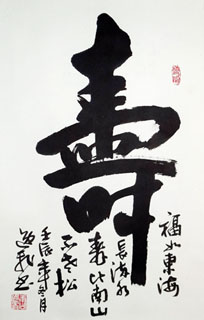 壽
福如東海
長流水
寿比南山
不老松
壬辰年
月